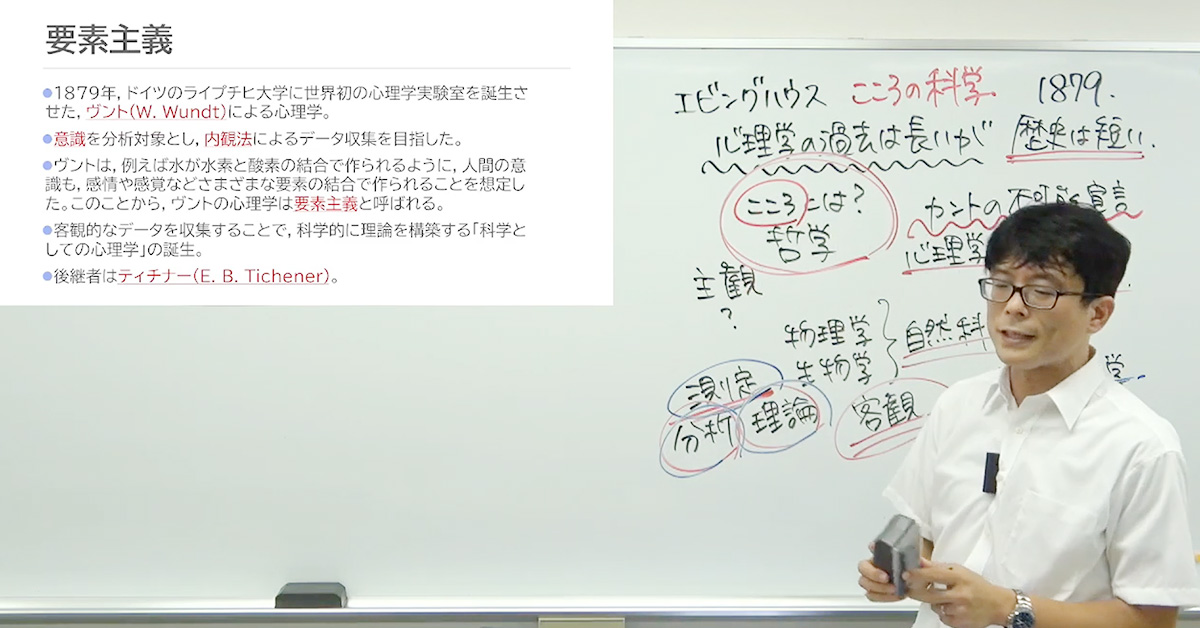 要素主義
●1879年, ドイツのライプチヒ大学に世界初の心理学実験室を誕生さ
せた, ヴント(W. Wundt)による心理学。
●意識を分析対象とし, 内観法によるデータ収集を目指した。
●ヴントは, 例えば水が水素と酸素の結合で作られるように, 人間の意
識も, 感情や感覚などさまざまな要素の結合で作られることを想定し
た。このことから, ヴントの心理学は要素主義と呼ばれる。
●客観的なデータを収集することで, 科学的に理論を構築する「科学と
しての心理学」の誕生。
●後継者はティチナー(E. B. Tichener)。
エビングハウス こころの科学. 1879.
心理学の過去は長いが 歴史は短い.
こころとは?
哲学
カントの不可能宣言
心理学
主観
?
物理学
生物学
自然科
学
測定
分析
理論
客観